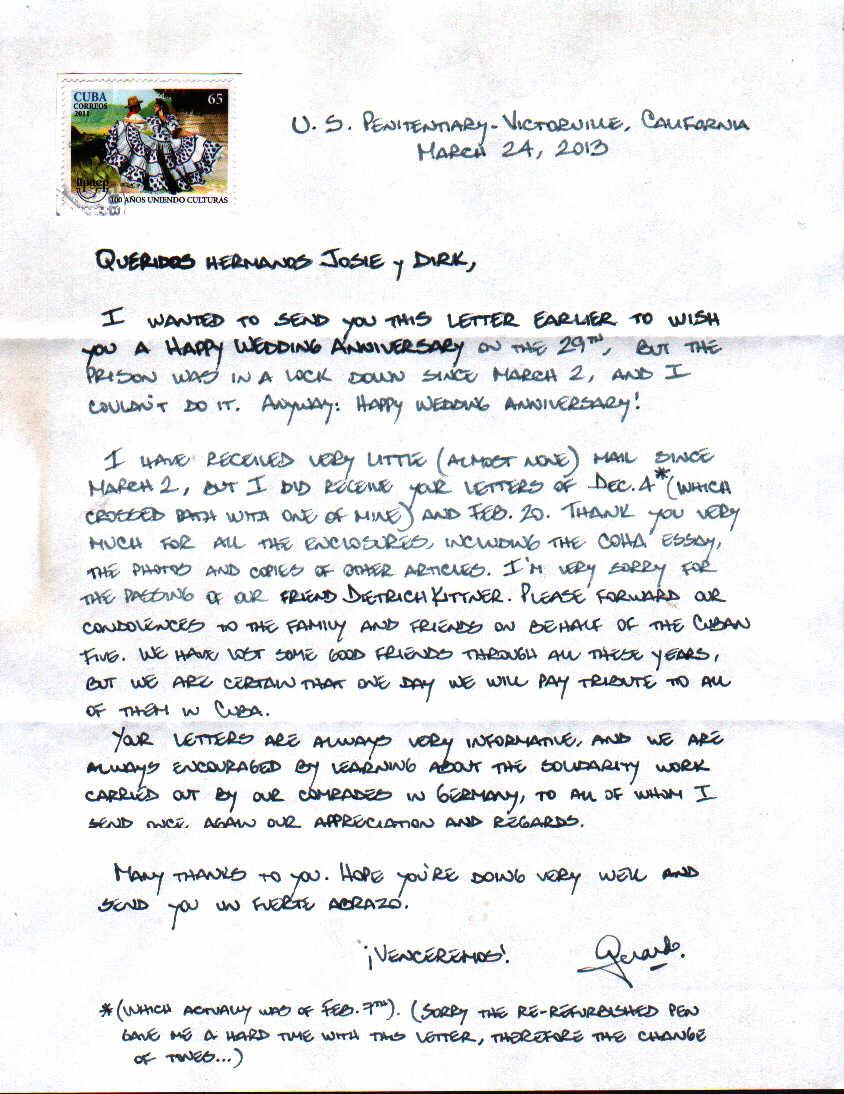 CUBA
CORREOS
2011
65
upaep
100 AÑOS UNIENDO CULTURAS
U. S. PENITENTIARY - VICTORVILLE, CALIFORNIA
MARCH 24, 2013
QUERIDOS HERMANOS JOSIE y DIRK,
I WANTED TO SEND YOU THIS LETTER EARLIER TO WISH
YOU A HAPPY WEDDING ANNIVERSARY ON THE 29TH, BUT THE
PRISON WAS IN A LOCK DOWN SINCE MARCH 2, AND I
COULDN'T DO IT. ANYWAY: HAPPY WEDDING ANNIVERSARY!
I HAVE RECEIVED VERY LITTLE (ALMOST NONE) MAIL SINCE
MARCH 2, BUT I DID RECEIVE YOUR LETTERS OF DEC. 4* (WHICH
CROSSED PATH WITH ONE OF MINE) AND FEB. 20. THANK YOU VERY
MUCH FOR ALL THE ENCLOSURES, INCLUDING THE COHA ESSAY,
THE PHOTOS AND COPIES OF OTHER ARTICLES. I'M VERY SORRY FOR
THE PASSING OF OUR FRIEND DIETRICH KITTNER. PLEASE FORWARD OUR
CONDOLENCES TO THE FAMILY AND FRIENDS ON BEHALF OF THE CUBAN
FIVE. WE HAVE LOST SOME GOOD FRIENDS THROUGH ALL THESE YEARS,
BUT WE ARE CERTAIN THAT ONE DAY WE WILL PAY TRIBUTE TO ALL
OF THEM IN CUBA.
YOUR LETTERS ARE ALWAYS VERY INFORMATIVE, AND WE ARE
ALWAYS ENCOURAGED BY LEARNING ABOUT THE SOLIDARITY WORK
CARRIED OUT BY OUR COMRADES IN GERMANY, TO ALL OF WHOM I
SEND ONCE AGAIN OUR APPRECIATION AND REGARDS.
MANY THANKS TO YOU. HOPE YOU'RE DOING VERY WELL AND
SEND YOU UN FUERTE ABRAZO.
¡VENCEREMOS! Gerardo.
*(WHICH ACTUALLY WAS OF FEB. 7TH). (SORRY THE RE-REFURBISHED PEN
GAVE ME A HARD TIME WITH THIS LETTER, THEREFORE THE CHANGE
OF TONES...)